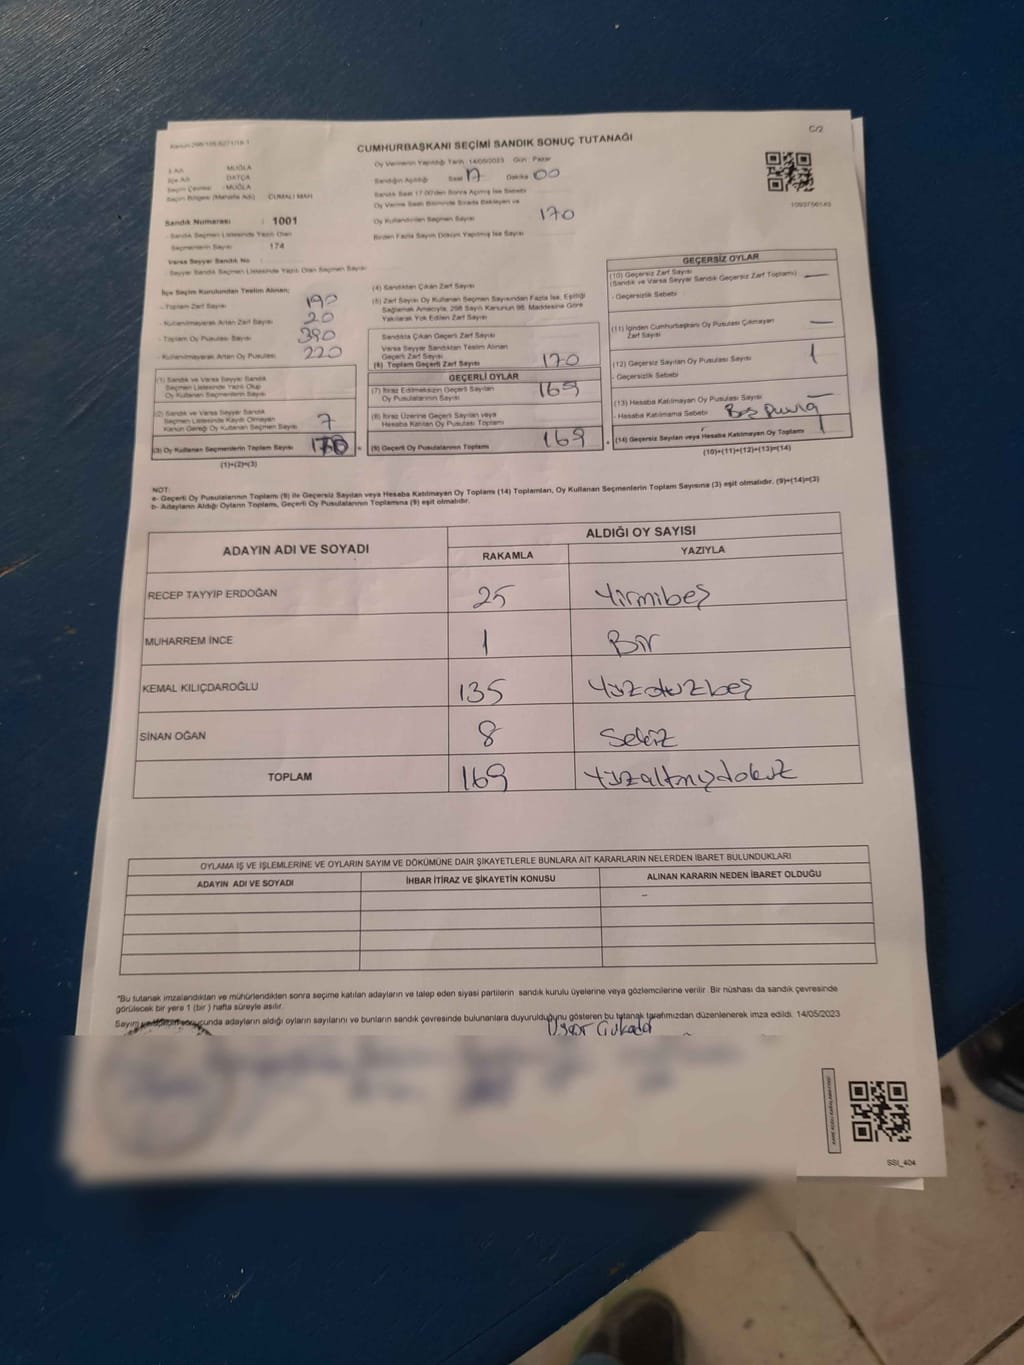 C/2
CUMHURBAŞKANI SEÇİMİ SANDIK SONUÇ TUTANAĞI
İl Adı : MUĞLA
İlçe Adı : DATÇA
Seçim Çevresi : MUĞLA
Seçim Bölgesi (Mahalle Adı) : CUMALI MAH
Sandık Numarası : 1001
- Sandık Seçmen Listesinde Yazılı Olan
Seçmenlerin Sayısı : 174
Varsa Seyyar Sandık No :
- Seyyar Sandık Seçmen Listesinde Yazılı Olan Seçmen Sayısı:
Oy Vermenin Yapıldığı Tarih : 14/05/2023 Gün : Pazar
Sandığın Açıldığı Saat 17 Dakika 00
Sandık Saat 17:00'den Sonra Açılmış İse Sebebi
Oy Verme Saati Bitiminde Sırada Bekleyen ve
Oy Kullandırılan Seçmen Sayısı 170
Birden Fazla Sayım Döküm Yapılmış İse Sayısı
1093756143
İlçe Seçim Kurulundan Teslim Alınan;
- Toplam Zarf Sayısı 190
- Kullanılmayarak Artan Zarf Sayısı 20
- Toplam Oy Pusulası Sayısı 390
- Kullanılmayarak Artan Oy Pusulası 220
(1) Sandık ve Varsa Seyyar Sandık
Seçmen Listesinde Yazılı Olup
Oy Kullanan Seçmenlerin Sayısı
(2) Sandık ve Varsa Seyyar Sandık
Seçmen Listesinde Kaydı Olmayan
Kanun Gereği Oy Kullanan Seçmen Sayısı 7
(3) Oy Kullanan Seçmenlerin Toplam Sayısı
(1)+(2)=(3)
(4) Sandıktan Çıkan Zarf Sayısı
(5) Zarf Sayısı Oy Kullanan Seçmen Sayısından Fazla İse, Eşitliği
Sağlamak Amacıyla, 298 Sayılı Kanunun 98. Maddesine Göre
Yakılarak Yok Edilen Zarf Sayısı
Sandıkta Çıkan Geçerli Zarf Sayısı
Varsa Seyyar Sandıktan Teslim Alınan
Geçerli Zarf Sayısı
(6) Toplam Geçerli Zarf Sayısı 170
GEÇERLİ OYLAR
(7) İtiraz Edilmeksizin Geçerli Sayılan
Oy Pusulasının Sayısı 169
(8) İtiraz Üzerine Geçerli Sayılan veya
Hesaba Katılan Oy Pusulası Toplamı
(9) Geçerli Oy Pusulalarının Toplamı 169
GEÇERSİZ OYLAR
(10) Geçersiz Zarf Sayısı
(Sandık ve Varsa Seyyar Sandık Geçersiz Zarf Toplamı) —
- Geçersizlik Sebebi
(11) İçinden Cumhurbaşkanı Oy Pusulası Çıkmayan
Zarf Sayısı —
(12) Geçersiz Sayılan Oy Pusulası Sayısı 1
- Geçersizlik Sebebi
(13) Hesaba Katılmayan Oy Pusulası Sayısı —
- Hesaba Katılmama Sebebi Boş
(14) Geçersiz Sayılan veya Hesaba Katılmayan Oy Toplamı 1
(10)+(11)+(12)+(13)=(14)
NOT:
a- Geçerli Oy Pusulalarının Toplamı (9) ile Geçersiz Sayılan veya Hesaba Katılmayan Oy Toplamı (14) Toplamları, Oy Kullanan Seçmenlerin Toplam Sayısına (3) eşit olmalıdır. (9)+(14)=(3)
b- Adayların Aldığı Oyların Toplamı, Geçerli Oy Pusulalarının Toplamına (9) eşit olmalıdır.
ADAYIN ADI VE SOYADI ALDIĞI OY SAYISI
RAKAMLA YAZIYLA
RECEP TAYYİP ERDOĞAN 25 Yirmibeş
MUHARREM İNCE 1 Bir
KEMAL KILIÇDAROĞLU 135 Yüzotuzbeş
SİNAN OĞAN 8 Sekiz
TOPLAM 169 Yüzaltmışdokuz
OYLAMA İŞ VE İŞLEMLERİNE VE OYLARIN SAYIM VE DÖKÜMÜNE DAİR ŞİKAYETLERLE BUNLARA AİT KARARLARIN NELERDEN İBARET BULUNDUKLARI
ADAYIN ADI VE SOYADI İHBAR İTİRAZ VE ŞİKAYETİN KONUSU ALINAN KARARIN NEDEN İBARET OLDUĞU
–
*Bu tutanak imzalandıktan ve mühürlendikten sonra seçime katılan adayların ve talep eden siyasi partilerin sandık kurulu üyelerine veya gözlemcilerine verilir. Bir nüshası da sandık çevresinde
görülecek bir yere 1 (bir) hafta süreyle asılır.
Sayım sonucunda adayların aldığı oyların sayılarını ve bunların sandık çevresinde bulunanlara duyurulduğunu gösteren bu tutanak tarafımızdan düzenlenerek imza edildi. 14/05/2023
SSI_404